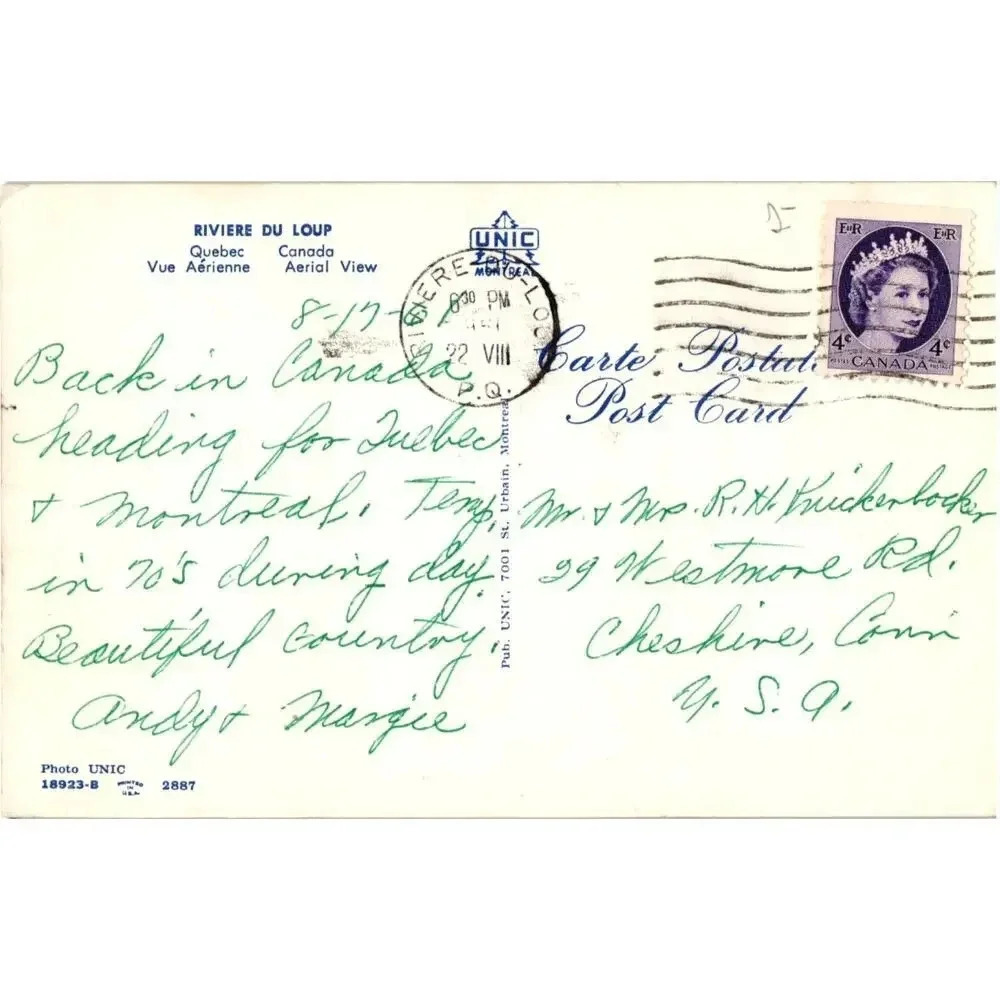 RIVIERE DU LOUP
Quebec Canada
Vue Aérienne Aerial View
UNIC
MONTREAL
RIVIERE-DU-LOU
6 30 PM
22 VIII
P.Q.
EIIR EIIR
4¢ 4¢
POSTES CANADA POSTAGE
Carte Postal
Post Card
8-17-
Back in Canada
heading for Quebec
& Montreal. Temp.
in 70's during day.
Beautiful country.
Andy & Margie
Pub. UNIC, 7001 St. Urbain, Montreal
Mr. & Mrs. R. H. Knickerbocker
29 Westmore Rd.
Cheshire, Conn
U. S. A.
Photo UNIC
18923-B PRINTED IN U.S.A. 2887